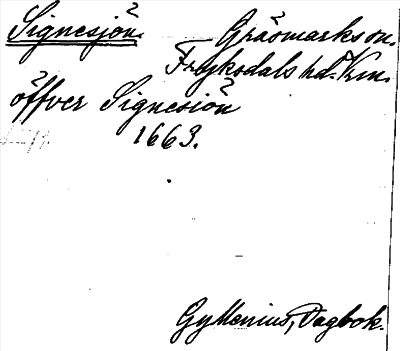 Signesjön. Gräsmarks sn.
Fryksdals hd. Vrm.
öffver Signesiön
1663.
Gyllenius, Dagbok.